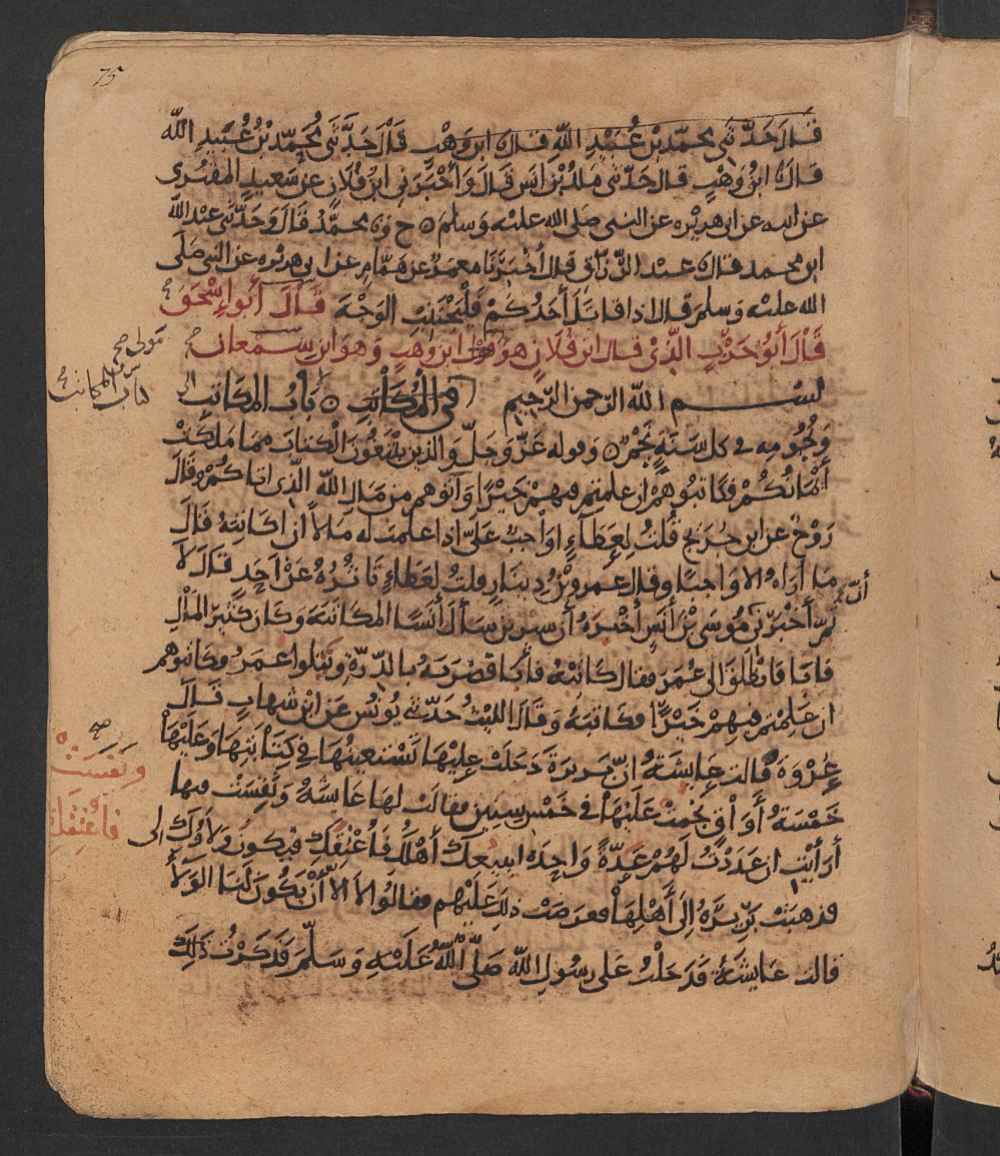 75
قَالَ حَدَّثَنِي مُحَمَّدُ بْنُ عُبَيْدِ اللَّهِ قَالَ ابْنُ وَهْبٍ قَالَ حَدَّثَنِي مُحَمَّدُ بْنُ عُبَيْدِ اللَّهِ
قَالَ ابْنُ وَهْبٍ قَالَ حَدَّثَنِي مَلِكُ بْنُ أَنَسٍ قَالَ وَأَخْبَرَنِي ابْنُ فُلَانٍ عَنْ سَعِيدٍ الْمَقْبُرِي
عن ابيه عن ابى هريره عن النبي صلى الله عليه وسلم ح محمد قَالَ وَحَدَّثَنِي عبد الله
ابن محمد قال عبد الرزاق قال أَخْبَرَنَا مَعْمَرٌ عن همام عن ابى هريره عن النبي صلى
الله عليه وسلم قال اذا قاتل أَحَدُكُمْ فَلْيَجْتَنِبِ الوَجْهَ قَالَ أَبُو إِسْحَقَ
قَالَ أَبُو حَرْبٍ الَّذِي قال ابن فلان هو قول ابن وهب وهو ابن سمعان
بسم الله الرحمن الرحيم في المكاتب باب المكاتب
وَنُجُومِهِ في كل سَنَةٍ نَجْمٌ وقوله عَزَّ وَجَلَّ وَالذين يَبْتَغُونَ الْكِتَابَ مما مَلَكَتْ
أَيْمَانُكُمْ فَكَاتِبُوهُمْ إن علمتم فيهم خَيْرًا وَآتُوهم من مَالِ اللهِ الَّذِي اتاكُمْ وقَالَ
رَوْحٌ عن ابن جريج قُلْتُ لِعَطَاءٍ اوَاجب عَلَيَّ اذا علمت له مَالاً ان اكَاتِبَهُ قَالَ
مَا أُرَاهُ الا وَاجبًا وقال عمرو بْنُ دِينَارٍ قلتُ لِعَطَاءٍ تَأثُرُهُ عَنْ أحَدٍ قَالَ لَا
ثم أَخْبَرَنِي أن مُوسَى بْنَ أَنَسٍ أَخْبَرَهُ أن سيرين سَأَلَ أَنَسًا المكاتبة وَكَانَ كَثِيرَ المَالِ
فابا فانْطَلَقَ الى عُمَرَ فقال كَاتِبْهُ فأبا فَضَرَبَهُ بالدِّرَّةِ ويتلوا عمر فكاتبوهم
ان عَلِمْتم فيهمْ خَيْرًا فكاتبهُ وَقَالَ الليثُ حَدَّثَنِي يُونُسُ عَنِ ابْنِ شِهَابٍ قَالَ
عُرْوَةُ قالت عَايِشَةُ انَّ بَرِيرَةَ دَخَلَتْ عليها تَسْتَعِينُهَا في كِتَابَتِهَا وَعَلَيْهَا
خَمْسَةُ أَوَاقٍ نُجِمَتْ عَلَيْهَا في خَمْسِ سِنِين فقالت لهَا عَايشَةُ وَنَفِسَتْ فيها
أَرَأَيْتِ ان عَدَدْتُ لَهُمْ عَدَّةً وَاحِدَة ايبيعك أَهْلُكِ فَأُعْتِقَكِ فيكون وَلَاؤُكِ لى
فذهبَتْ بَرِيرَةُ إلَى أَهْلِهَا فعرضت ذلك عَلَيْهِم فقالوا لا الَّا أَنْ يَكُونَ لَنَا الوَلَاءُ
قالت عَايشَةُ فَدَخَلْتُ على رسولِ اللهِ صَلَّى اللهُ عَلَيْهِ وَسَلَّمَ فَذَكَرْتُ ذَلِكَ
كتاب المكاتب
صح
وَنَفِسَتْ
فأُعْتِقَكِ